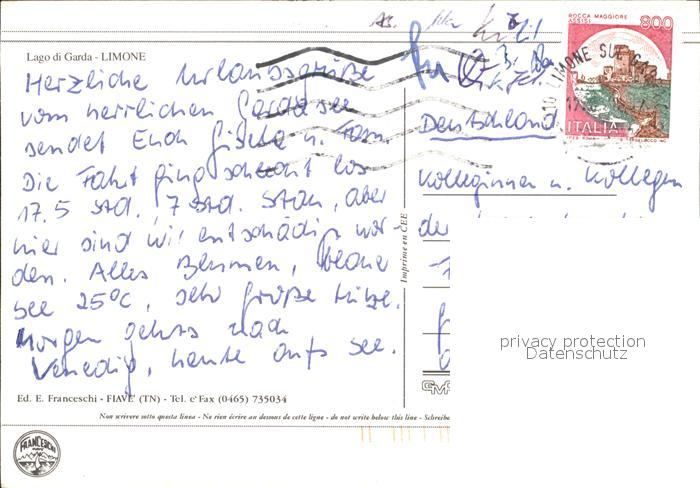 ROCCA MAGGIORE
ASSISI
800
LIMONE SUL
ITALIA
Lago di Garda - LIMONE
Herzliche Urlaubsgrüße
vom herrlichen Gardasee
sendet Euch Gisela u. Fam.
Die Fahrt ging schlecht los
17.5 Std. 7 Std. Stau, aber
hier sind wir entschädigt wor
den. Alles Blumen, blaue
See 25°C, sehr große Hitze.
Morgen gehts nach
Venedig, heute aufs See.
Deutschland
Kolleginnen u. Kollegen
de
Imprime en CEE
privacy protection
Datenschutz
Ed. E. Franceschi - FIAVE' (TN) - Tel. e Fax (0465) 735034
Non scrivere sotto questa linea - Ne rien écrire au dessous de cette ligne - do not write below this line - Schreibe
FRANCESCHI